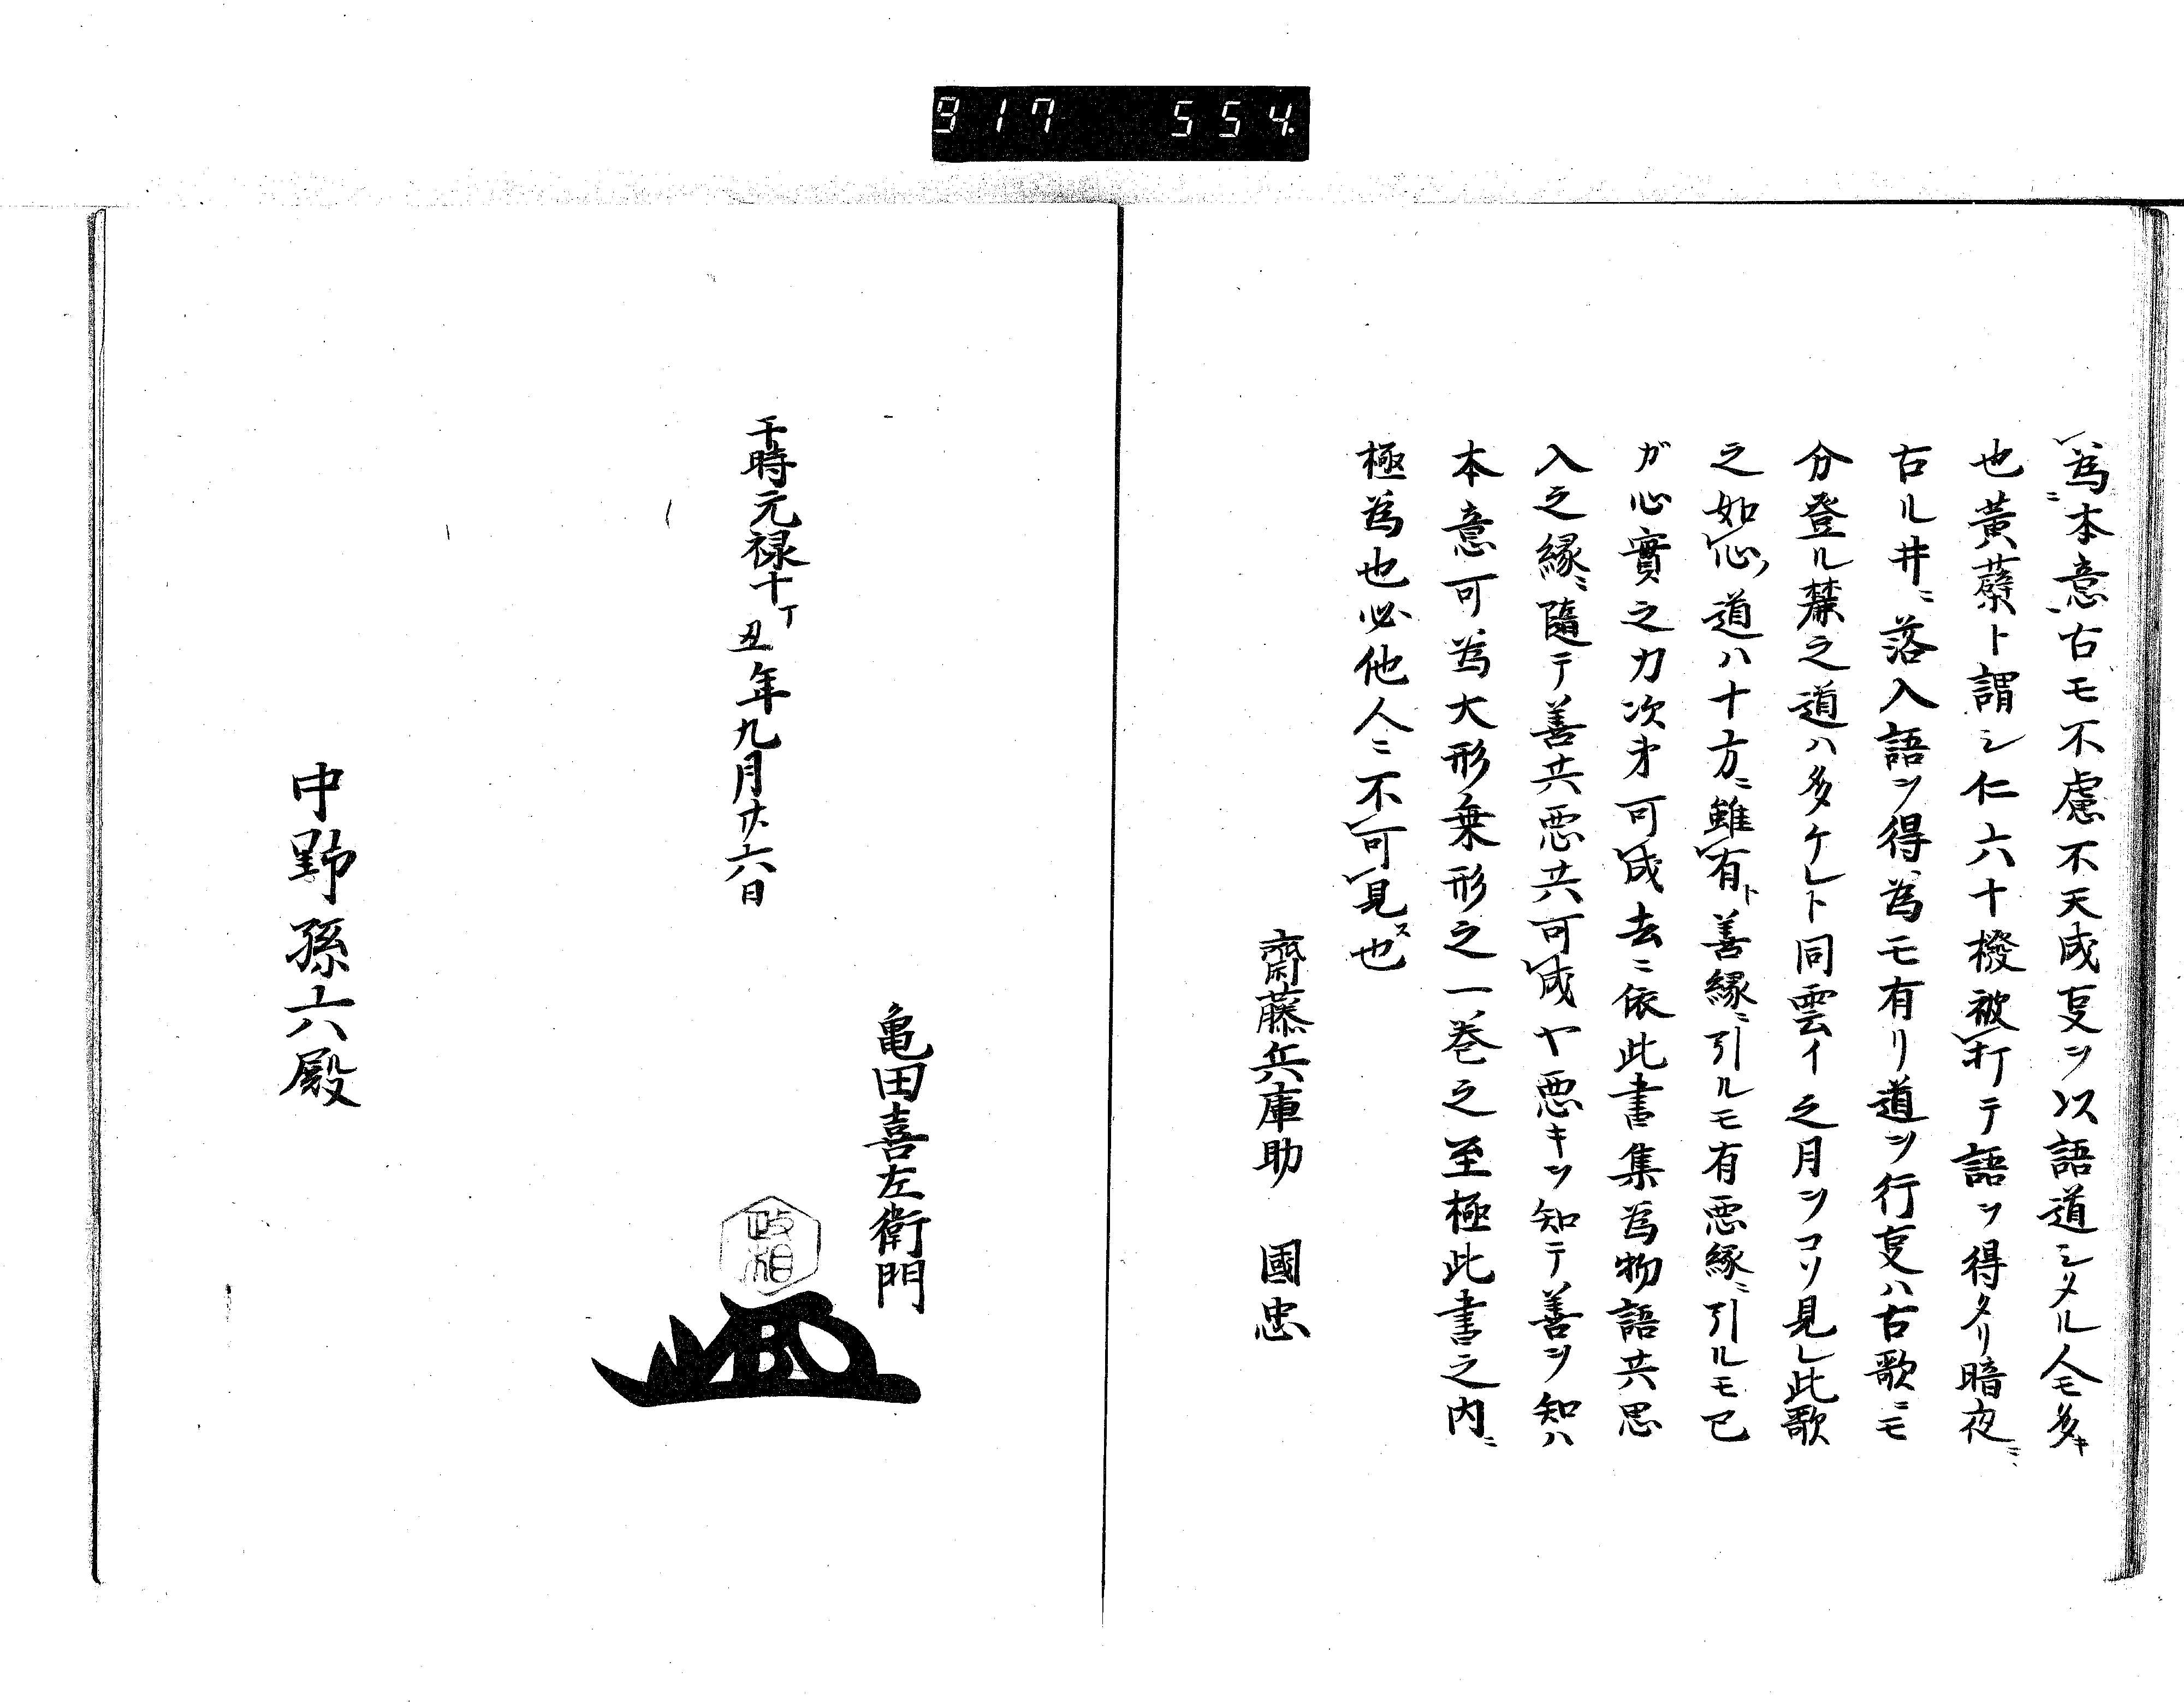 917 554
為ニ本意古モ不慮不天成支ヲ以語道シメル人モ多キ
也黄蘗ト謂シ仁六十橃被打テ語ヲ得タリ暗夜ニ
古ル井ニ落入語ヲ得為モ有リ道ヲ行支ハ古歌ニモ
分登ル麓之道ハ多ケレト同雲イ之月ヲコソ見レ此歌
之如心道ハ十方ニ雖有ト善縁ニ引ルモ有悪縁ニ引ルモ己
ガ心實之力次才可成去ニ依此書集為物語共思
入之縁ニ隨テ善共悪共可成ヤ悪キヲ知テ善ヲ知ハ
本意可為大形乗形之一巻之至極此書之内ニ
極為也必他人ニ不可見ス也
齋藤兵庫助 國忠
亀田喜左衛門
政相
干時元禄十丁丑年九月廿六日
中野孫六殿